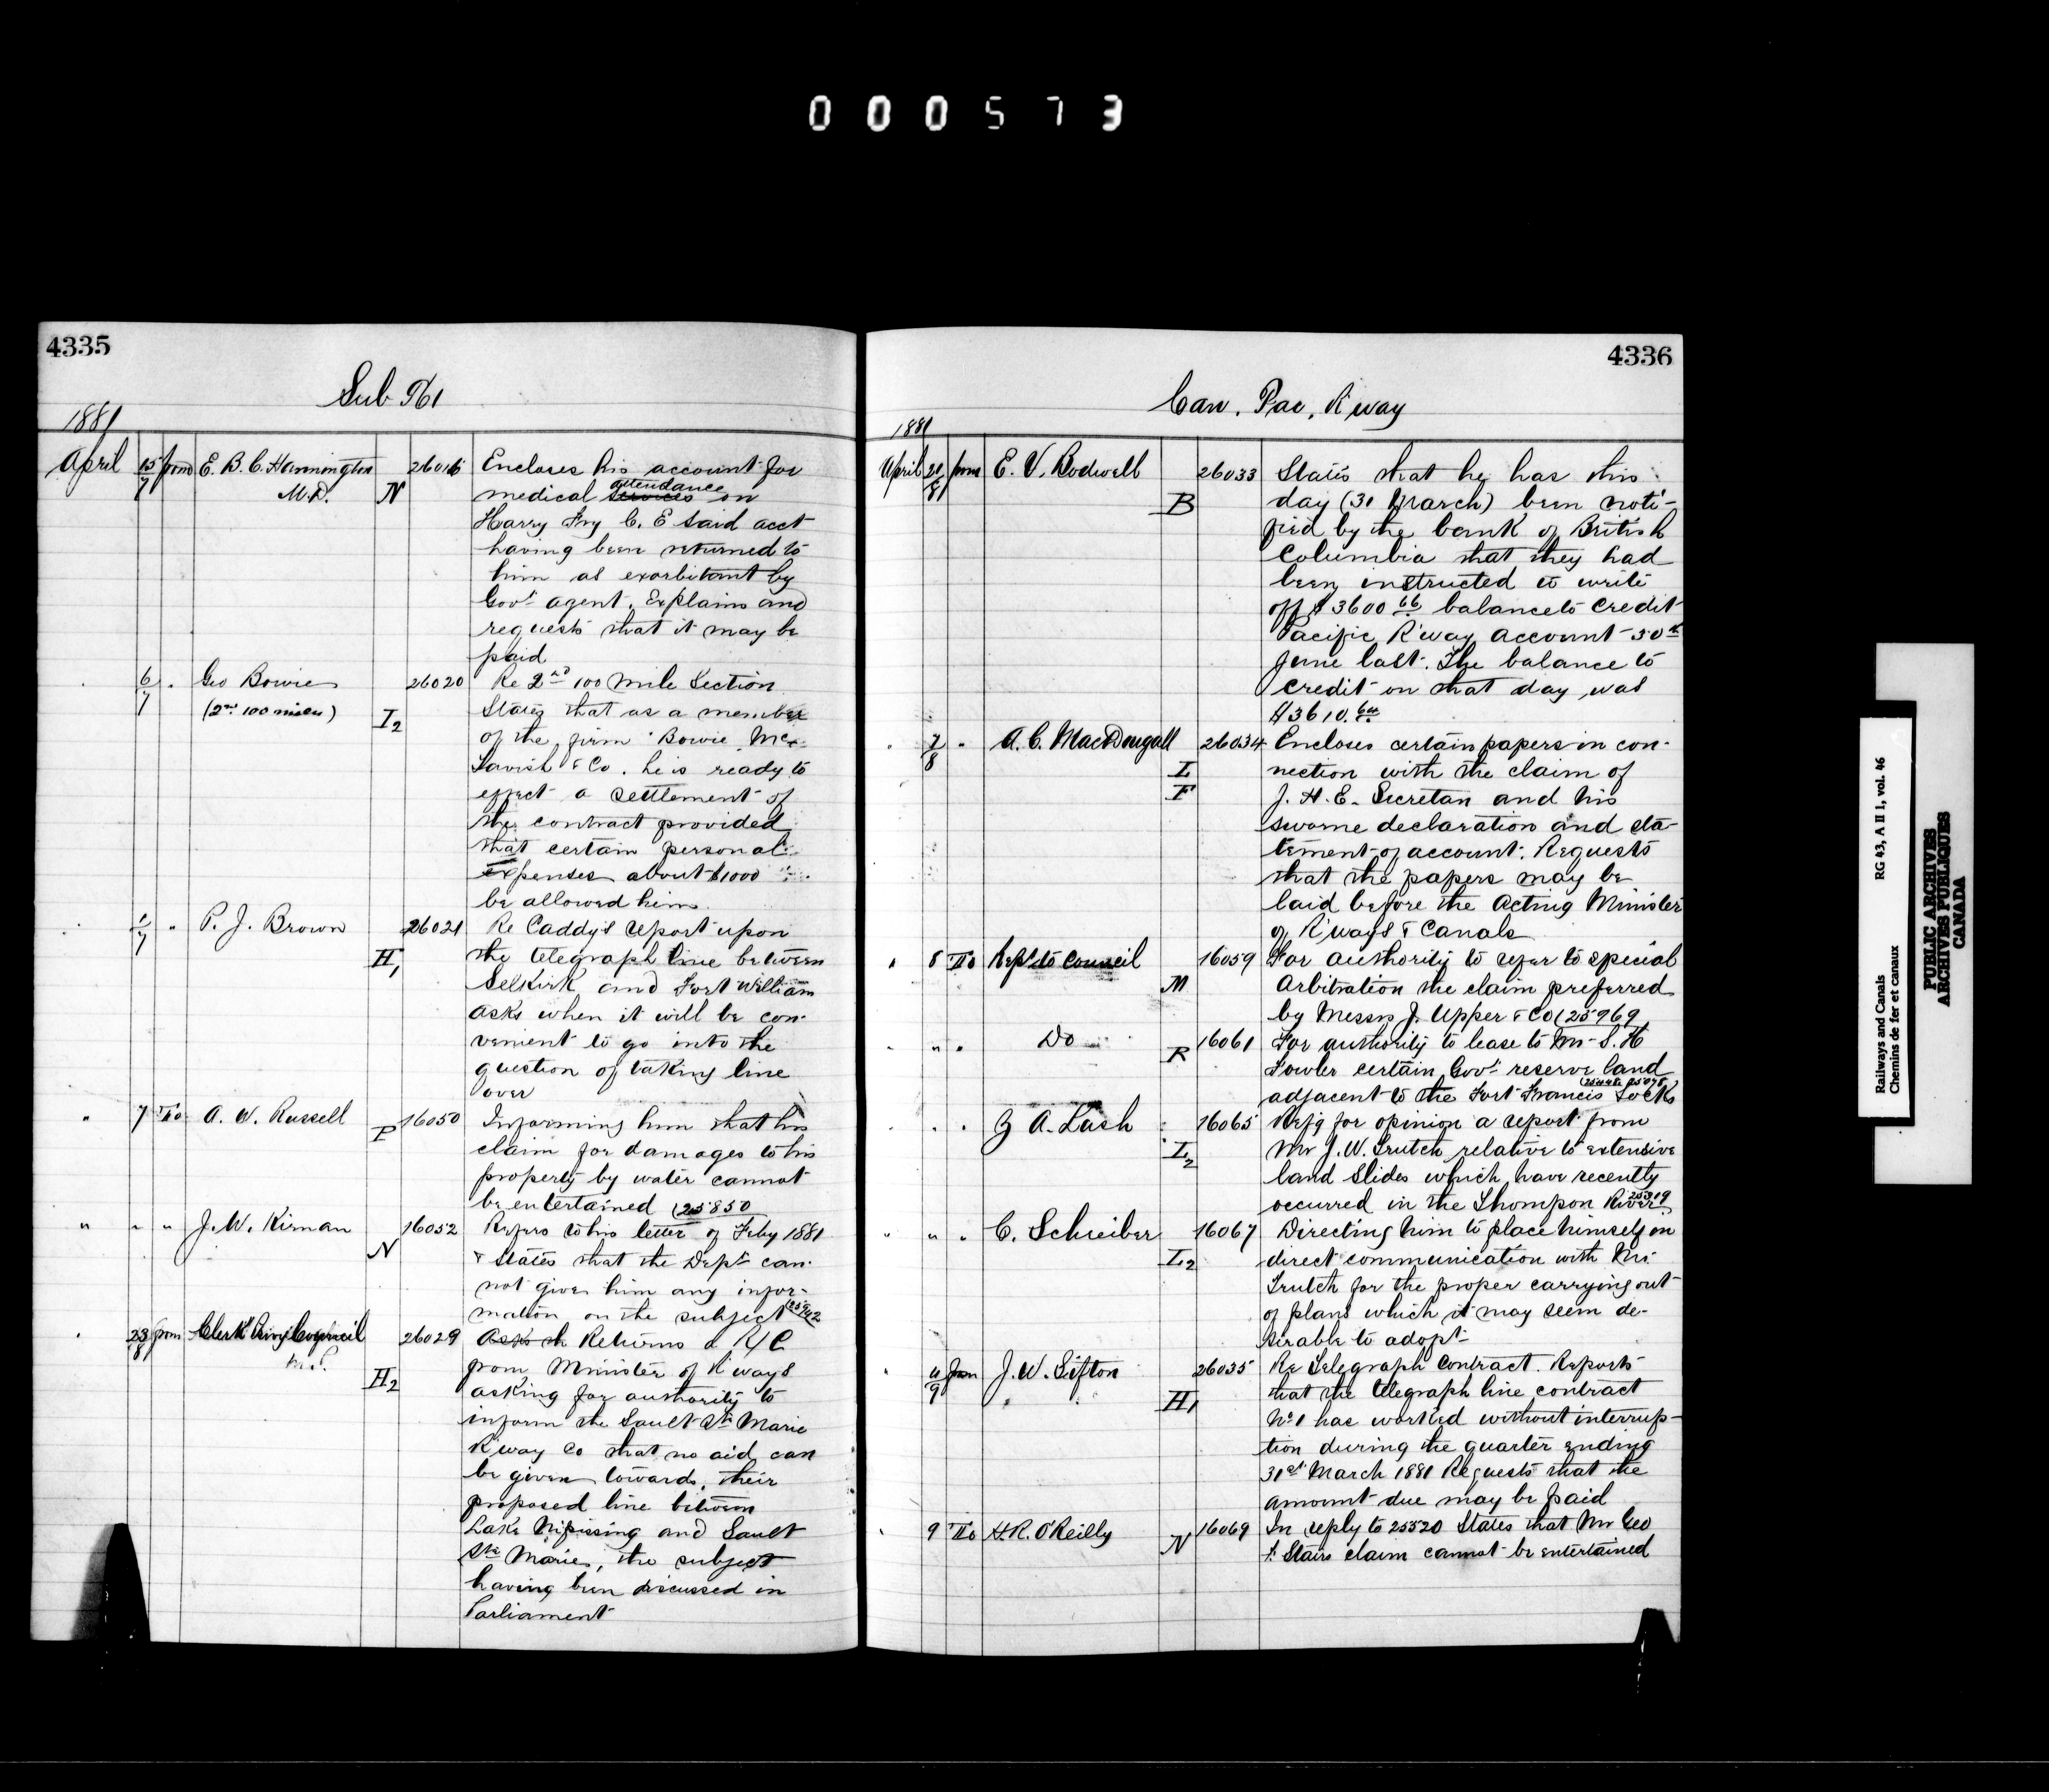 000573
4335
Sub 761
1881
April 15/7 from E. B. C. Hannington M.D. N 26016 Encloses his account for
medical services attendance on
Harry Fry C. E said acct
having been returned to
him as exorbitant by
Govt agent. Explains and
requests that it may be
paid
6/7 " Geo Bowie (2nd 100 miles) I2 26020 Re 2nd 100 mile Section
States that as a member
of the firm Bowie Mc-
Tavish & Co. he is ready to
effect a settlement of
the contract provided
that certain personal
expenses about $1000
be allowed him
1/7 " P. J. Brown H1 26021 Re Caddy's report upon
the telegraph line between
Selkirk and Fort William
asks when it will be con-
venient to go into the
question of taking line
over
" 7 To A. W. Russell P 16050 Informing him that his
claim for damages to his
property by water cannot
be entertained (25850
" " " J. W. Kirnan N 16052 Refers to his letter of Feby 1881
& States that the Dept can-
not give him any infor-
mation on the subject 25942
" 23/8 from Clerk Privy Council H2 26029 Asks th Returns a R/C
from Minister of R'ways
asking for authority to
inform the Sault Ste Marie
R'way Co that no aid can
be given towards their
proposed line between
Lake Nipissing and Sault
Ste Marie, the subject
having been discussed in
Parliament
4336
Can. Pac. R'way
1881
April 21/8 from E. V. Bodwell B 26033 States that he has this
day (31 March) been noti-
fied by the bank of British
Columbia that they had
been instructed to write
off $3600 66 balance to credit
Pacific R'way account 30th
June last. The balance to
credit on that day was
$3610.
" 7/8 " A. C. MacDougall I F 26034 Encloses certain papers in con-
nection with the claim of
J. H. E. Secretan and his
sworne declaration and sta-
tement of account. Requests
that the papers may be
laid before the Acting Minister
of R'ways & Canals
" 8 To Rept to Council M 16059 For authority to refer to special
Arbitration the claim preferred
by Messrs J. Upper & Co (25969
" " " Do R 16061 For authority to lease to Mr S. H
Fowler certain Govt reserve land
adjacent to the Fort Francis Locks
" " Z A. Lash I2 16065 Refg for opinion a report from
Mr J. W. Trutch relative to extensive
land slides which have recently
occurred in the Thompson River 25319
" " " C. Schreiber I2 16067 Directing him to place himself in
direct communication with Mr
Trutch for the proper carrying out
of plans which it may seem de-
sirable to adopt
" 4/9 from J. W. Sifton H1 26035 Re Telegraph Contract. Reports
that the telegraph line contract
No 1 has worked without interrup-
tion during the quarter ending
31st March 1881 Requests that the
amount due may be paid
" 9 To H.R. O'Reilly N 16069 In reply to 25520 States that Mr Geo
Stairs claim cannot be entertained
Railways and Canals RG 43, A II 1, vol. 46
Chemins de fer et canaux
PUBLIC ARCHIVES
ARCHIVES PUBLIQUES
CANADA